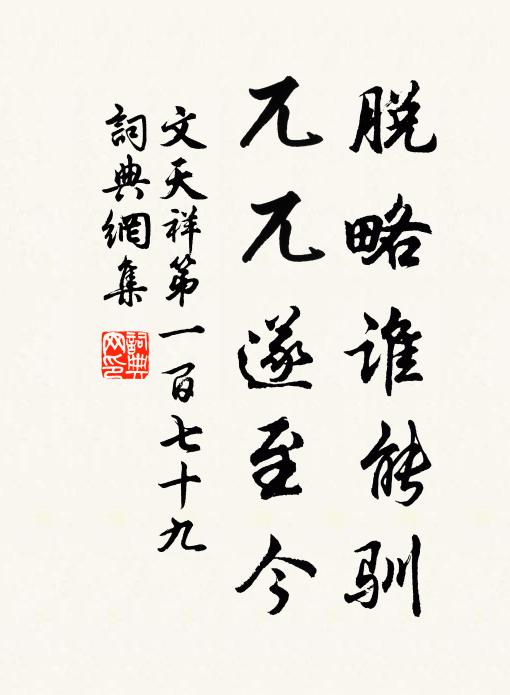 脱略谁能驯
兀兀遂至今
文天祥第一百七十九
詞典網集
詞典网印